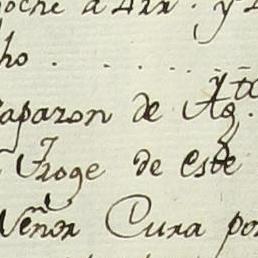 oche a 4 rr. y
ho . . . . .
aparon de Ag.
Troge de este
Señor Cura por